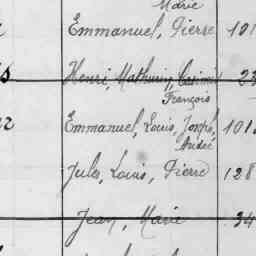 Marie
Emmanuel, Pierre 101
Henri, Mathurin, Casimir 23
François
Emmanuel, Louis, Joseph, 101
André
Jules, Louis, Pierre 128
Jean, Marie 34